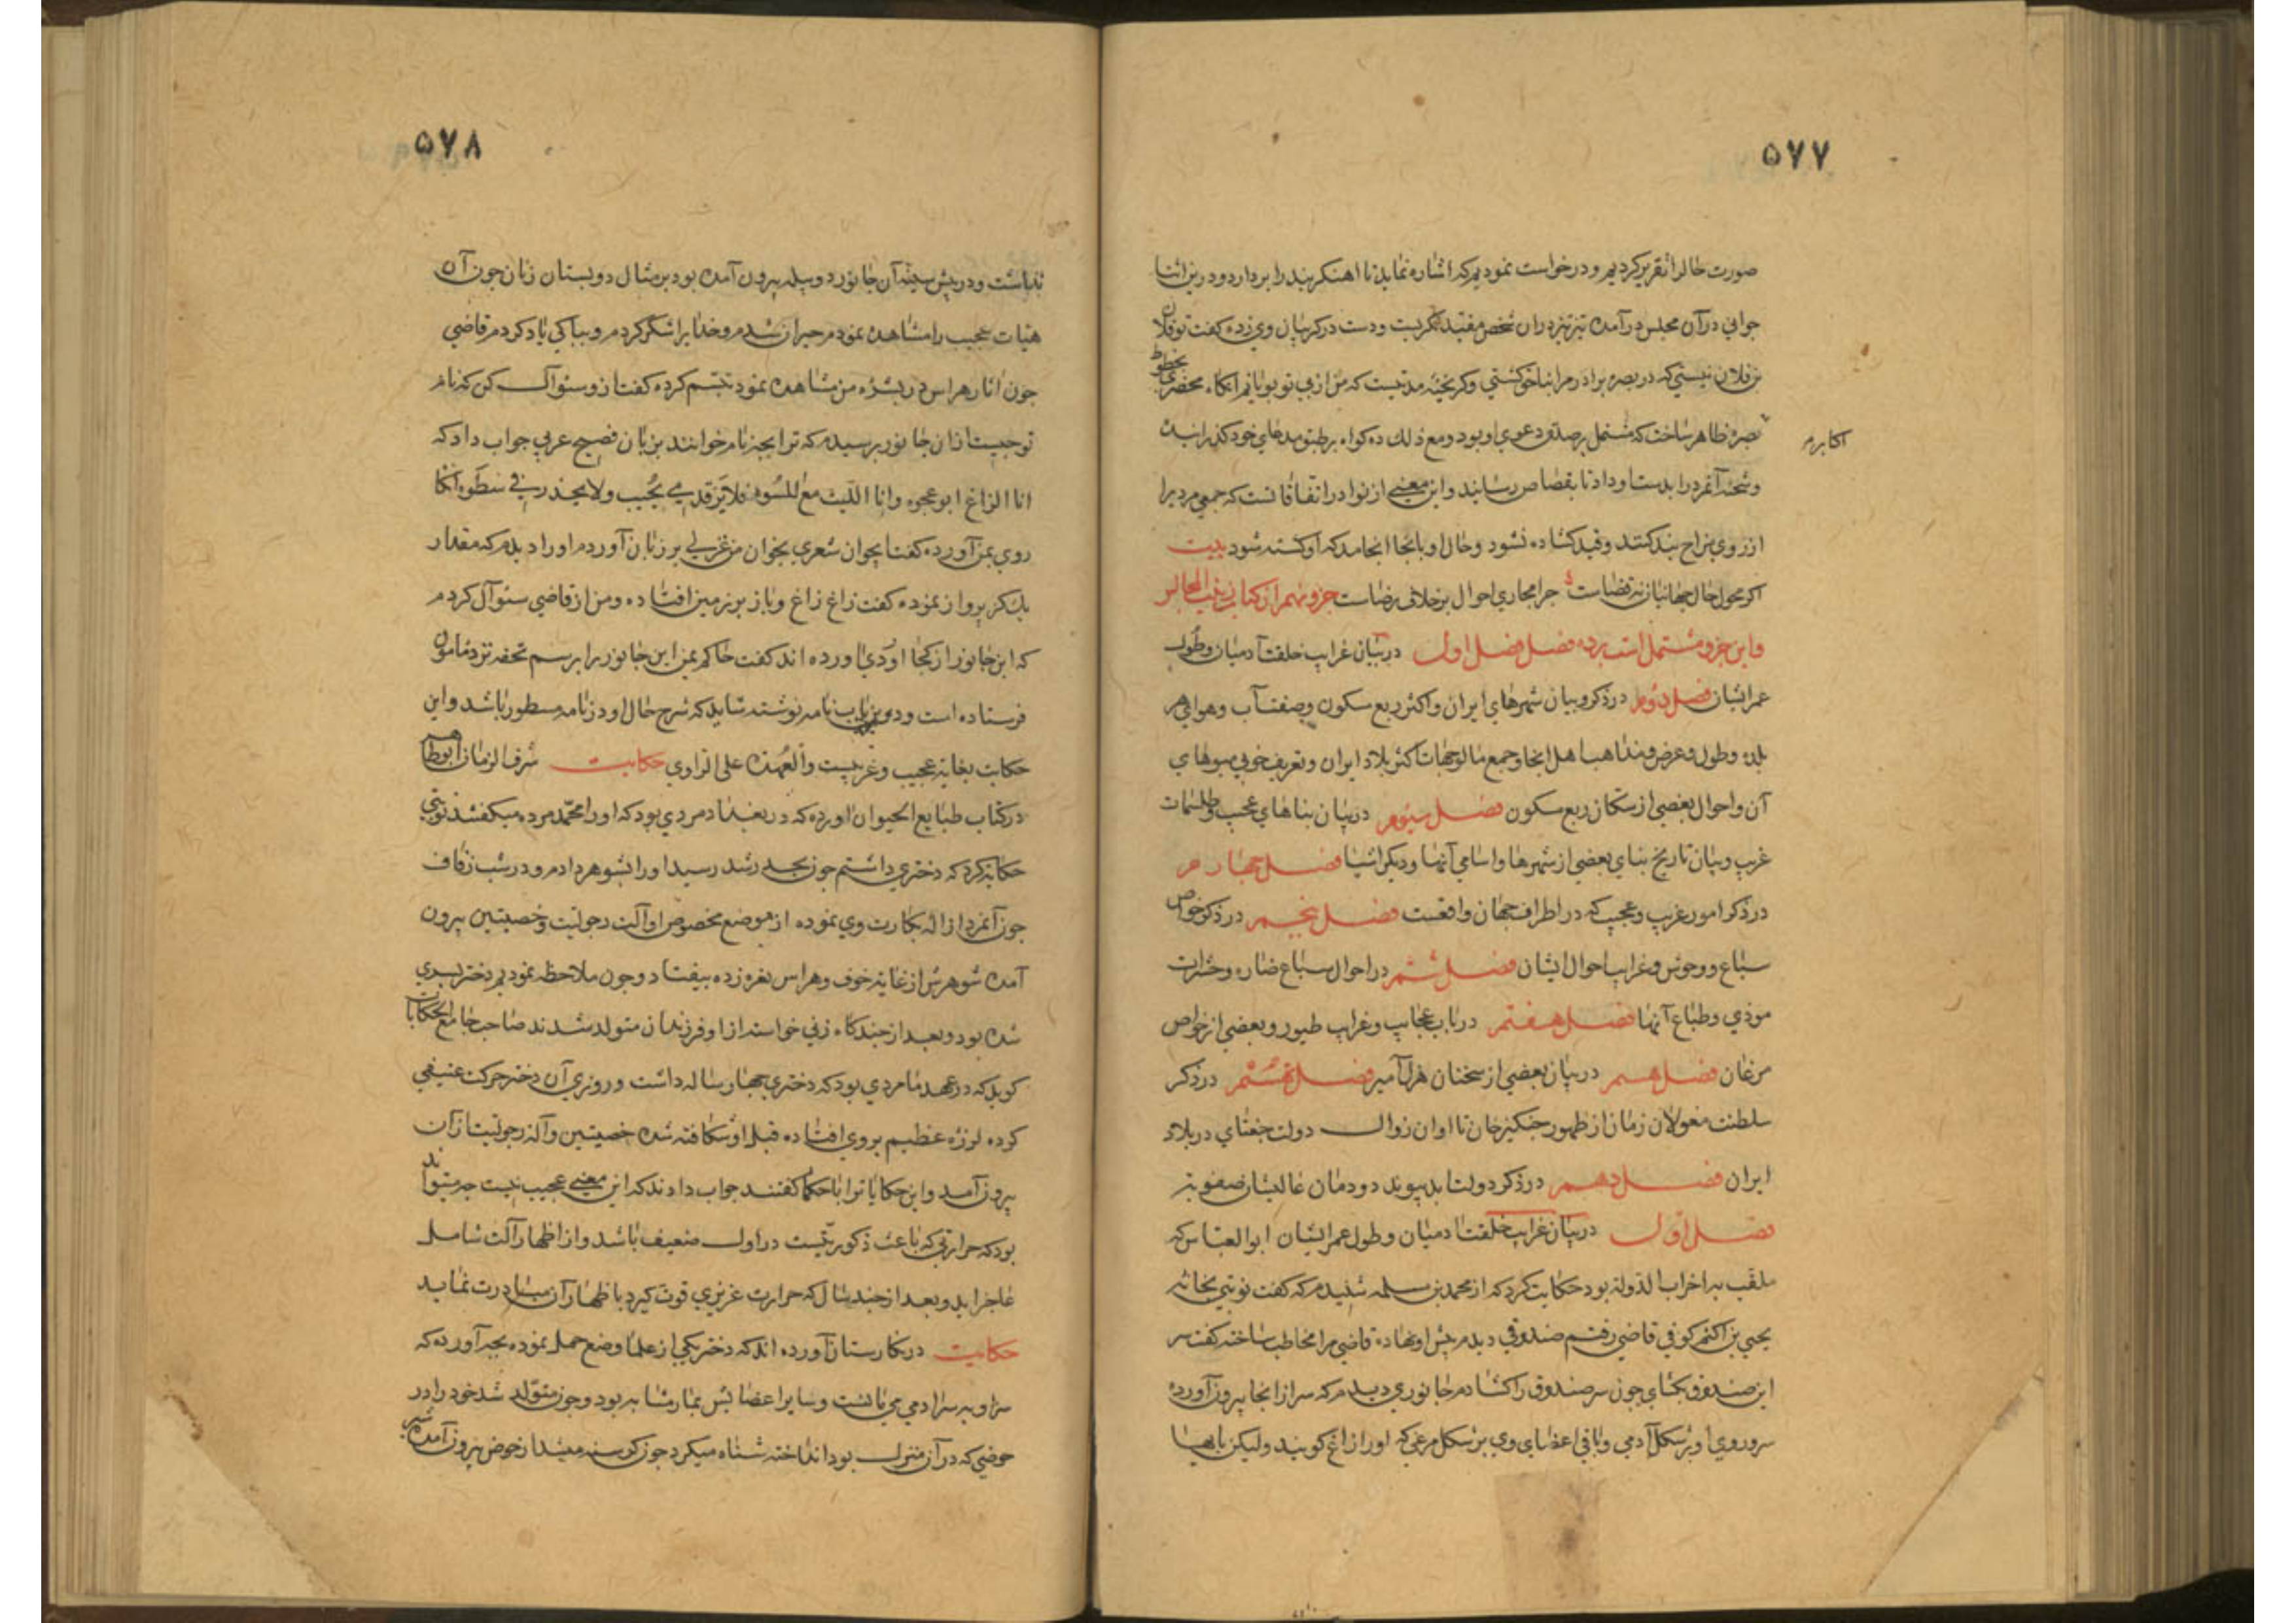 ۵۷۷
صورت حالرا تقریر کردیم و درخواست نمودیم که اشاره نماید تا اهنکر بند را بردارد و درین اثنا
جوانی در آن مجلس در آمده تیز تیز در ان شخص مقید نکریست و دست در کریبان وی زده کفت تو فلان
بن فلان نیستی که در بصره برادر مرا بناحق کشتی و کریخته مدتیست که من از پی تو پویانم انکاه محضری بخطوط
بصره ظاهر ساخت که مشتمل بر صدق دعوی او بود و مع ذلک ده کواه بر طبق مدعای خود کذرانید
اکابر
و شحنه آنمرد را بدست او داد تا بقصاص رسانید و این معنی از نوادر اتفاقاتست که جمعی مردیرا
از روی مزاح بند کنند و قید کشاده نشود و حال او بانجا انجامد که او کشته شود بیت
اکر محول حال جهانیان نه قضاست چرا مجاری احوال برخلاف رضاست جزو نهم از کتاب زینت المجالس
و این جزو مشتمل است برده فصل فصل اول در بیان غرایب خلقت آدمیان و طول
عمر ایشان فصل دوم در ذکر و بیان شهرهای ایران و اکثر ربع مسکون و صفت آب و هوای هر
بلده و طول و عرض و مذاهب اهل انجا و جمع مال و جهات اکثر بلاد ایران و تعریف خوبی میوهای
آن و احوال بعضی از سکان ربع مسکون فصل سیوم در بیان بناهای عجیب و طلسمات
غریب و بیان تاریخ بنای بعضی از شهرها و اسامی آنها و دیکر اشیا فصل چهارم
در ذکر امور غریب و عجیب که در اطراف جهان واقعست فصل پنجم در ذکر خواص
سباع و وحوش و غرایب احوال ایشان فصل ششم در احوال سباع ضاره و حشرات
موذی و طباع آنها فصل هفتم در باب عجایب و غرایب طیور و بعضی از خواص
مرغان فصل هشتم در بیان بعضی از سخنان هزل آمیز فصل نهم در ذکر
سلطنت مغولان زمان از ظهور جنکیز خان تا اوان زوال دولت جغتای در بلاد
ایران فصل دهم در ذکر دولت ابد پیوند دودمان عالیشان صفویه
فصل اول در بیان غرایب خلقت ادمیان و طول عمر ایشان ابو العباس که
ملقب به اخراب الدوله بود حکایت کرد که از محمد بن مسلمه شنیدم که کفت نوبتی بخانه
یحیی بن اکثم کوفی قاضی رفتم صندوقی دیدم پیش او نهاده قاضی مرا مخاطب ساخته کفت سر
این صندوق بکشای چون سر صندوق را کشادم جانوری دیدم که سر از انجا بیرون آورده
سر و روی او بر شکل آدمی و باقی اعضای وی بر شکل مرغی که او را زاغ کویند ولیکن
۵۷۸
نداشت و در پیش سینه آن جانور دو پله بیرون آمده بود بر مثال دو پستان زنان چون آن
هیات عجیب را مشاهده نمودم حیران شدم و خدایرا شکر کردم و بپاکی یاد کردم قاضی
چون اثار هراس در بشره من مشاهده نمود تبسم کرده کفت از و سئوال کن که نام
تو چیست ازان جانور پرسیدم که ترا بچه نام خوانند بزبان فصیح عربی جواب داد که
انا الزاغ ابو عجوه وانا اللیث مع اللبوه فلا ولا یحذر فی سطوه انکا
روی بمن آورده کفت ایجوان شعری بخوان من غزلی بر زبان آوردم او را دیدم که مقدار
یک کز پرواز نموده کفت زاغ زاغ و باز بر زمین افتاده و من از قاضی سئوال کردم
که این جانور از کجا اوردی اورده اند کفت حاکم یمن این جانور را برسم تحفه نزد مامون
فرستاده است و درین باب نامه نوشته شاید که شرح حال او در نامه مسطور باشد و این
حکایت بغایة عجیب و غریبست و العهده علی الراوی حکایت شرف الزمان ابوطاهر
در کتاب طبایع الحیوان اورده که در بغداد مردی بود که او را محمد مرده میکفتند نوبتی
حکایة کرد که دختری داشتم چون بحد رشد رسید او را بشوهر دادم و در شب زفاف
چون آنمرد ازاله بکارت وی نموده از موضع مخصوص او آلت رجولیت و خصیتین بیرون
آمده شوهرش از غایة خوف و هراس نعره زده بیفتاد و چون ملاحظه نمودیم دختر پسری
شده بود و بعد از چندکاه زنی خواسته ازا و فرزندان متولد شدند صاحب جامع الحکایات
کوید که در عهد ما مردی بود که دختری چهار ساله داشت و روزی آن دختر حرکت عنیفی
کرده لرزه عظیم بر وی افتاده قبل او شکافته شده خصیتین و آلة رجولیت ازان
بیرون آمد و این حکایاترا با حکما کفتند جواب دادند که این معنی عجیب نیست چه میتواند
بود که حرارتی که باعث ذکوریتست در اول ضعیف باشد و از اظهار آلت شامل
عاجز اید و بعد از چند سال که حرارت غریزی قوت کیرد باظهار آن مبادرت نماید
حکایت در نکارستان آورده اند که دختر یکی از علما وضع حمل نموده بچه آورده که
سر او بسر ادمی می مانست و سایر اعضایش بمار مشابه بود و چون متولد شد خود را در
حوضی که در آن منزل بود انداخته شناه میکرد چون کرسنه میشد از حوض بیرون آمده شیر